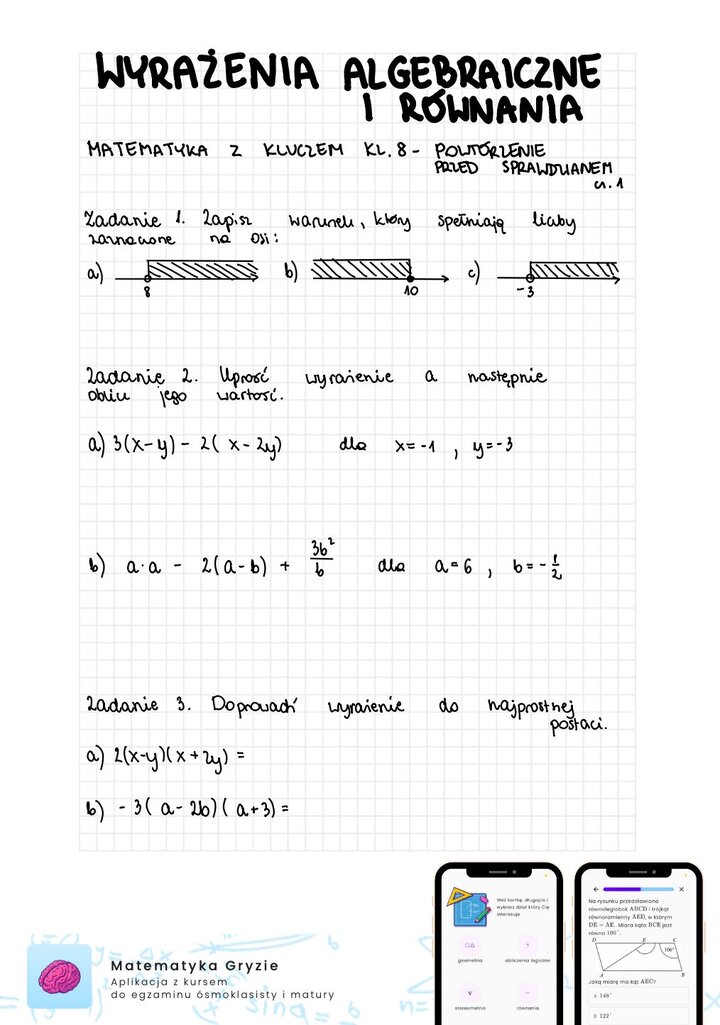 WYRAŻENIA ALGEBRAICZNE
I RÓWNANIA
MATEMATYKA Z KLUCZEM KL. 8 - POWTÓRZENIE
PRZED SPRAWDZIANEM
cz. 1
Zadanie 1. Zapisz warunek, który spełniają liczby
zaznaczone na osi:
a) 8 b) 10 c) -3
Zadanie 2. Uprość wyrażenie a następnie
oblicz jego wartość.
a) 3(x-y) - 2( x - 2y) dla x = -1 , y = -3
b) a·a - 2(a-b) + 3b²/b dla a = 6 , b = -1/2
Zadanie 3. Doprowadź wyrażenie do najprostszej
postaci.
a) 2(x-y)(x+2y) =
b) -3( a- 2b)( a+3) =
Matematyka Gryzie
Aplikacja z kursem
do egzaminu ósmoklasisty i matury
Weź kartkę, długopis i
wybierz dział który Cię
interesuje
geometria
obliczenia logiczne
stereometria
równania
Na rysunku przedstawiono
równoległobok ABCD i trójkąt
równoramienny AED, w którym
DE = AE. Miara kąta BCE jest
równa 106°.
D E C
106°
A B
Jaką miarę ma kąt AEC?
A 148°
B 122°